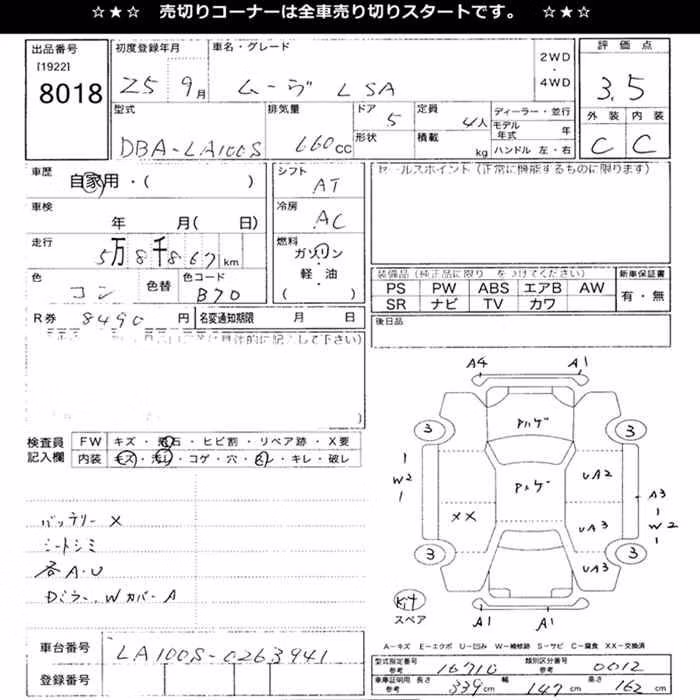 ☆★☆ 売切りコーナーは全車売り切りスタートです。 ☆★☆
出品番号 初度登録年月 車名・グレード 2WD・4WD 評価点
[1922] 8018 25 9月 ムーヴ L SA 3.5
型式 排気量 ドア 5 定員 4人 ディーラー・並行 外装 内装
DBA-LA100S 660cc 形状 積載 kg モデル年式 年 ハンドル 左・右 C C
車歴 自家用・( ) シフト AT セールスポイント(正常に機能するものに限ります)
車検 年 月( 日) 冷房 AC
走行 5万8千867km 燃料 ガソリン・軽・油 ( )
色 コン 色替 色コード B70
装備品(純正品に限り をつけてください) 新車保証書
PS PW ABS エアB AW 有・無
SR ナビ TV カワ
R券 8490円 名変通知期限 月 日 後日品
具体的に記入して下さい)
A4 A1
検査員記入欄 FW キズ・飛石・ヒビ割・リペア跡・X要
内装 キズ・汚れ・コゲ・穴・ビレ・キレ・破レ
3 Aハゲ 3
W2 Aハゲ UA2
XX A3
UA3 W2
3 UA3 3
バッテリー X
シートシミ
各A・U
Dミラー、Wカバー A
Kit
スペア A1 A1
A-キズ E-エクボ U-凹み W-補修跡 S-サビ C-腐食 XX-交換済
車台番号 LA100S-0263941
型式指定番号 参考 16710 類別区分番号 参考 0012
登録番号 車庫証明用 参考 長さ 339cm 幅 147cm 高さ 162cm